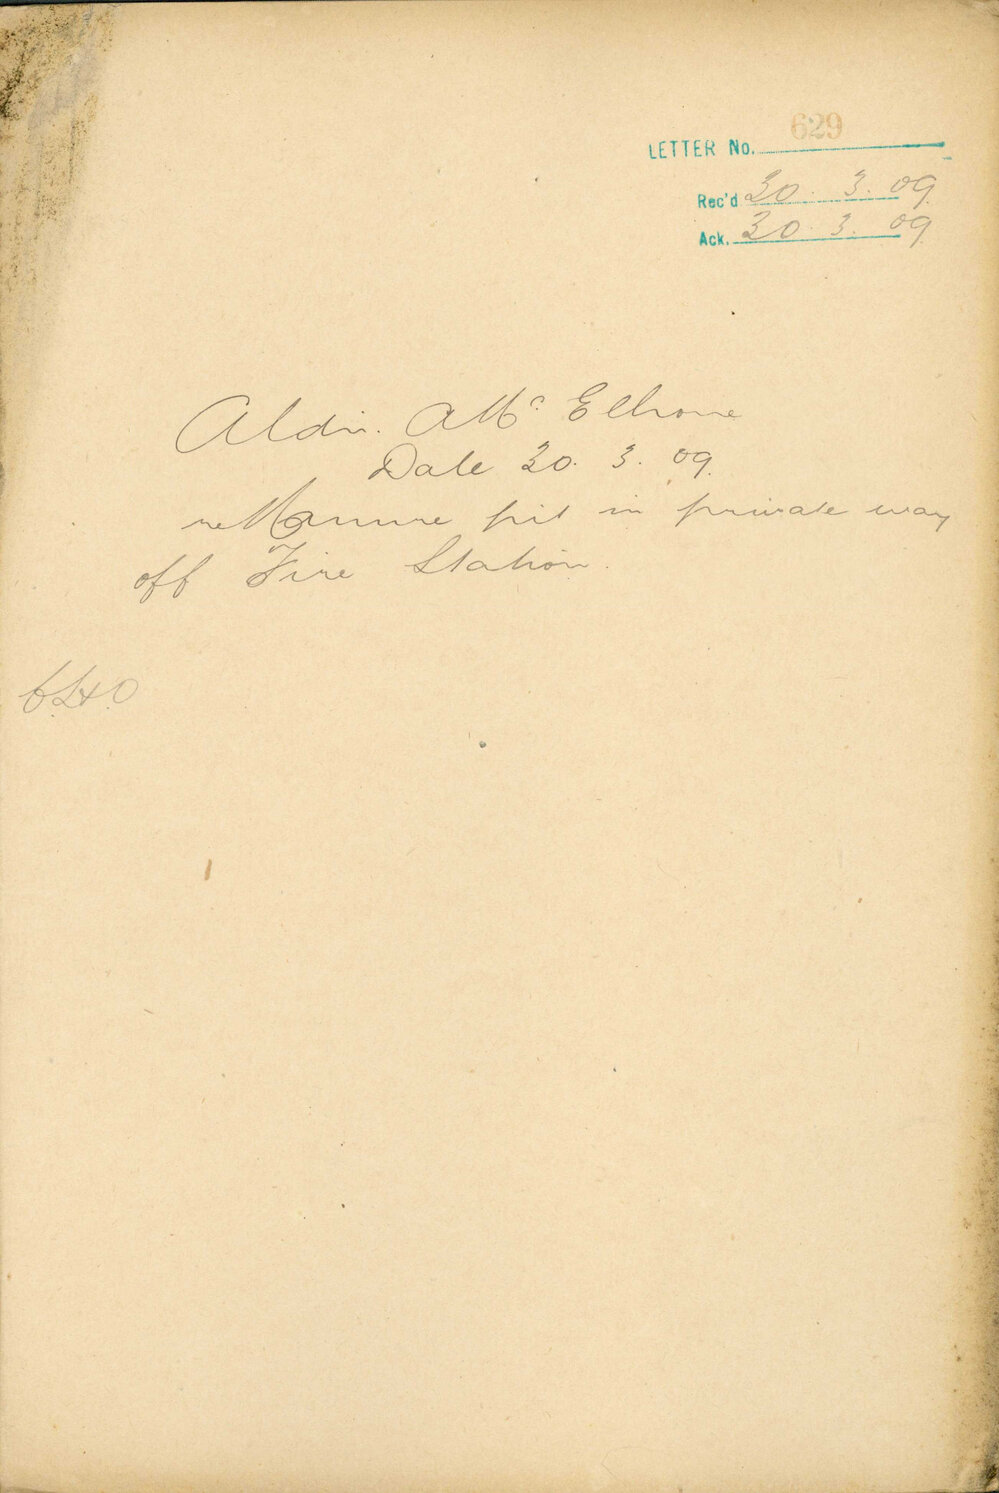 LETTER No. 629
Rec'd 30. 3. 09.
Ack. 30. 3. 09
Aldn. Mc. Elhone
Date 30. 3. 09.
re Manure pit in private way
off Fire Station.